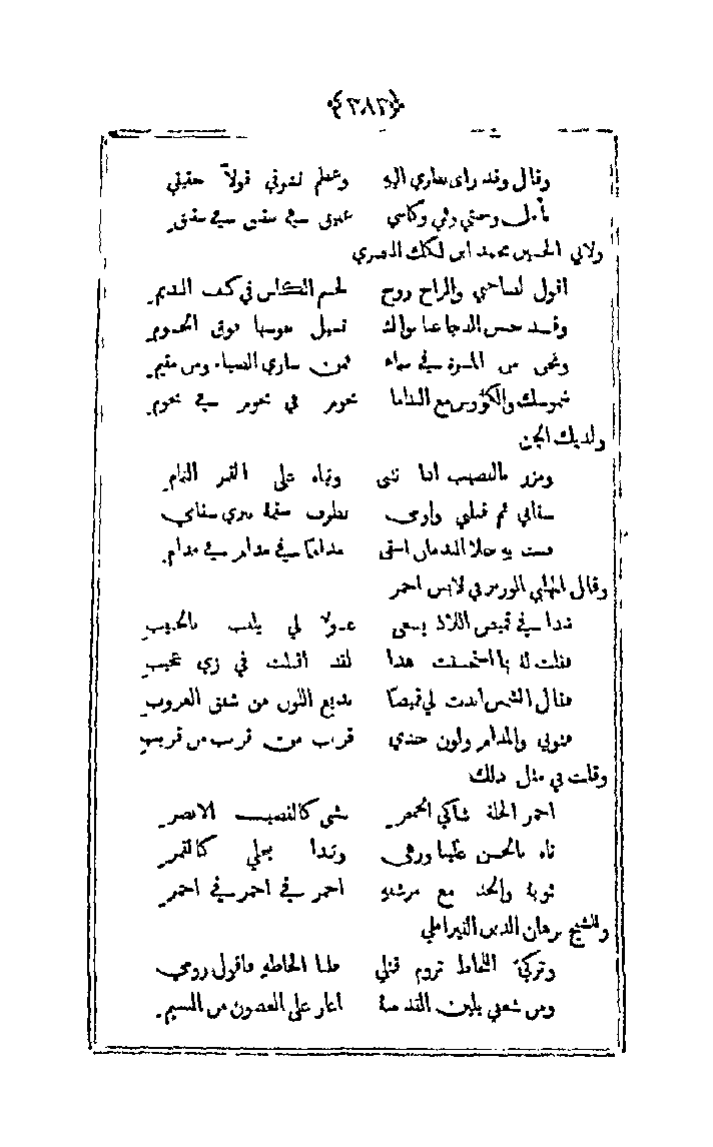 ﴿٢٨٢﴾
وقال وقد راى نظاري اليه وعظم تشوقي قولاً حقيقي
تأمل وجنتي وفمي وكاسي عقيق في عقيق في عقيق
ولابي الحسين محمد ابن لنكك البصري
اقول لصاحبي والراح روح لجسم الكاس في كف النديم
وقد حبس الدجا عنا تسيل نفوسها فوق الجسوم
ونحن من المسرة في سماء فمن ساري الضياء ومن مقيم
شموسك والكؤوس مع النداما نجوم في نجوم في نجوم
ولديك الجن
ومزر بالقضيب اذا تثنى وتياه على القمر التمام
سقاني ثم قبلني واومى بطرف سقمه يبري سقامي
فبت به خلا الندمان اسقى مداما في مدام في مدام
وقال المهلبي الوزير في لابس احمر
تبدا في قميص اللاذ يسعى عدو لي يلقب بالحبيب
فقلت له بما استحسنت هذا لقد اقبلت في زي عجيب
فقال الشمس اهدت لي قميصا بديع اللون من شفق الغروب
فثوبي والمدام ولون خدي قريب من قريب من قريب
وقلت في مثل ذلك
احمر الحلة شاكي الخنجر ينثني كالقضيب الانضر
تاه بالحسن علينا ورقى وتبدا ينجلي كالقمر
ثوبه والخد مع مرشفه احمر في احمر في احمر
وللشيخ برهان الدين القيراطي
وتركي اللحاظ تروم قتلي ظبا الحاظه فاقول روحي
ومن شعبي بلين القد منه اغار على الغصون من النسيم